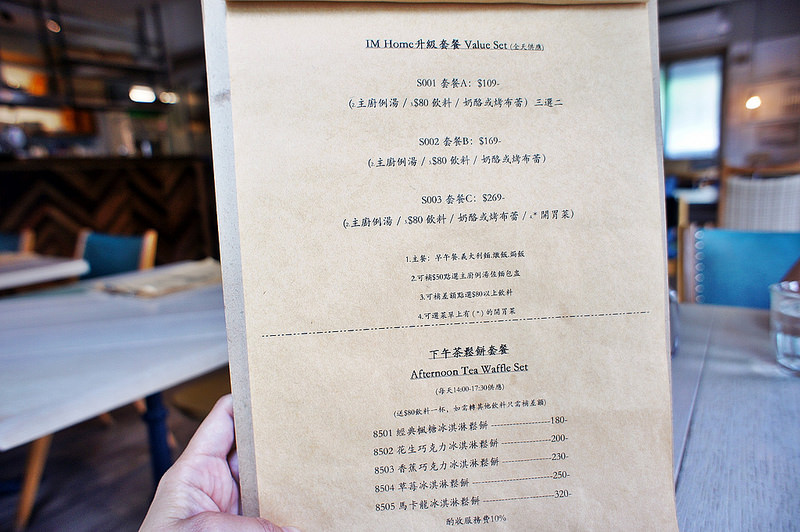 IM Home升級套餐 Value Set (全天供應)
S001 套餐A: $109-
(2.主廚例湯 / 3.$80 飲料 / 奶酪或烤布蕾) 三選二
S002 套餐B: $169-
(2.主廚例湯 / 3.$80 飲料 / 奶酪或烤布蕾)
S003 套餐C: $269-
(2.主廚例湯 / 3.$80 飲料 / 奶酪或烤布蕾 / 4.* 開胃菜)
1.主餐: 早午餐.義大利麵.燉飯.焗飯
2.可補$50點選主廚例湯佐麵包盅
3.可補差額點選$80以上飲料
4.可選菜單上有 ( * ) 的開胃菜
下午茶鬆餅套餐
Afternoon Tea Waffle Set
(每天14:00-17:30供應)
(送$80飲料一杯, 如需轉其他飲料只需補差額)
8501 經典楓糖冰淇淋鬆餅 ----------180-
8502 花生巧克力冰淇淋鬆餅 ----------200-
8503 香蕉巧克力冰淇淋鬆餅 ----------230-
8504 草莓冰淇淋鬆餅 ----------250-
8505 馬卡龍冰淇淋鬆餅 ----------320-
酌收服務費10%